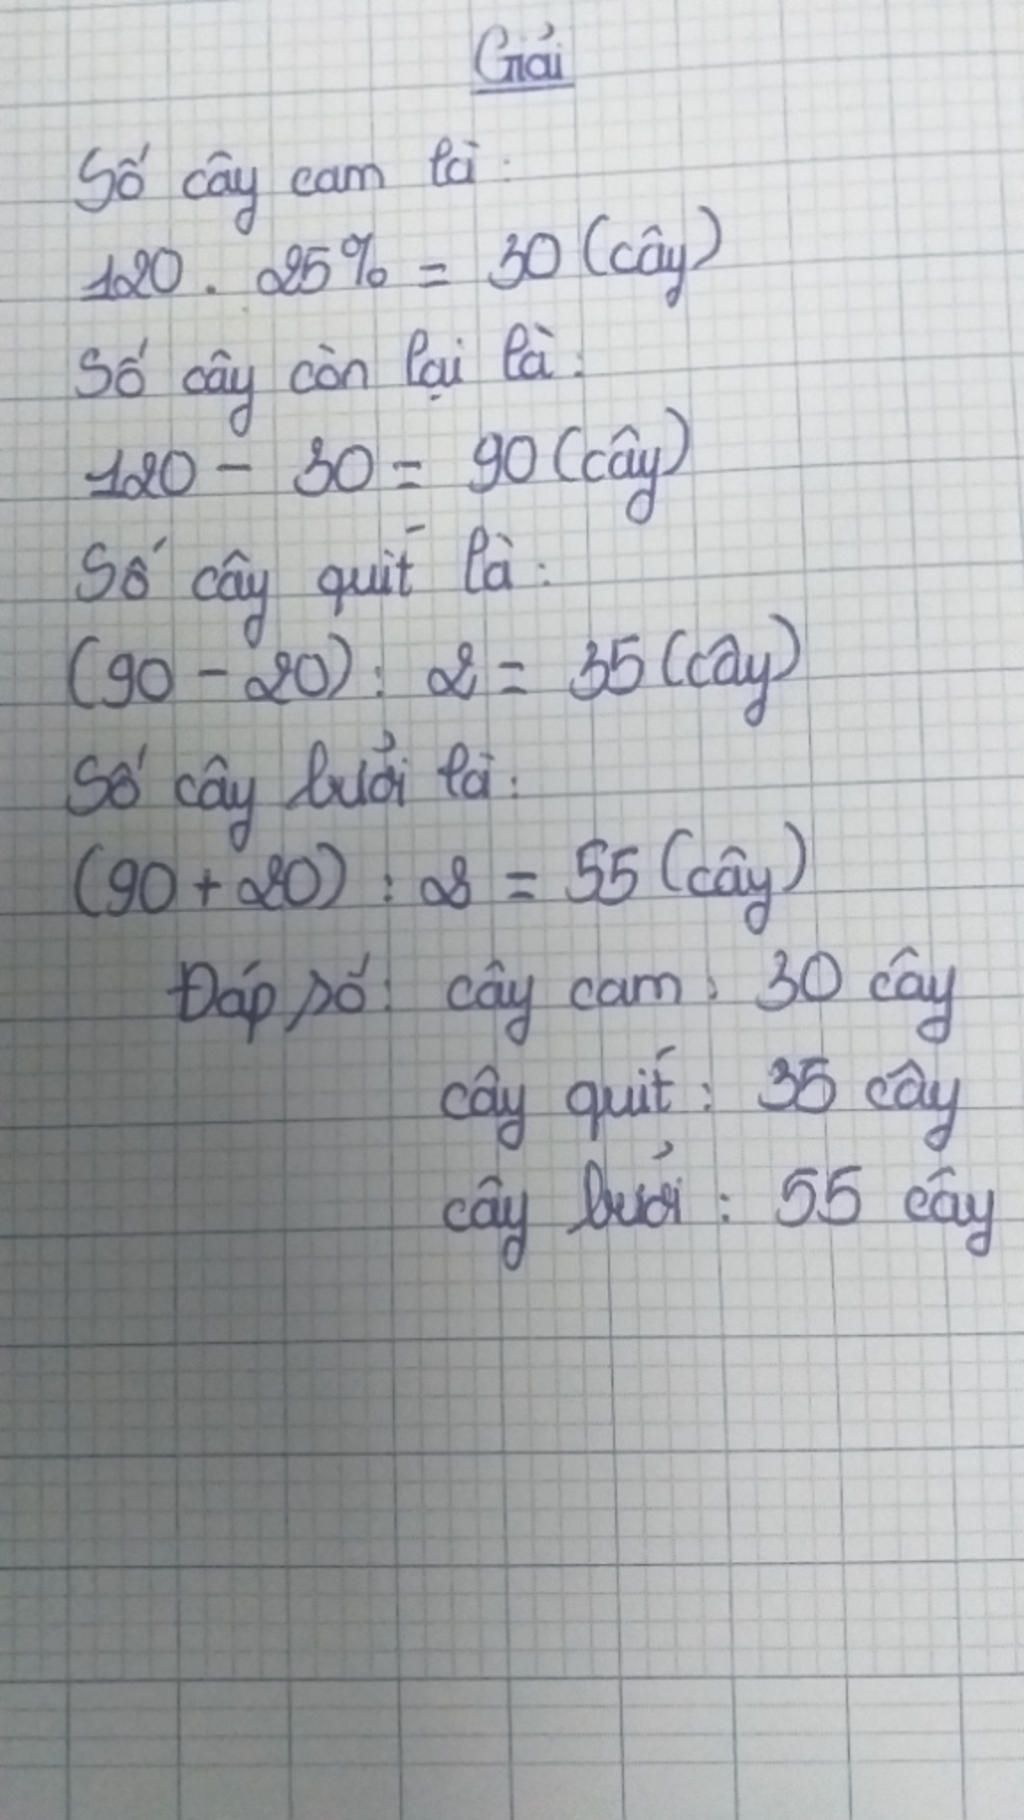 Giải
Số cây cam là:
120 . 25% = 30 (cây)
Số cây còn lại là:
120 - 30 = 90 (cây)
Số cây quít là:
(90 - 20) : 2 = 35 (cây)
Số cây bưởi là:
(90 + 20) : 2 = 55 (cây)
Đáp số: cây cam: 30 cây
cây quít: 35 cây
cây bưởi: 55 cây